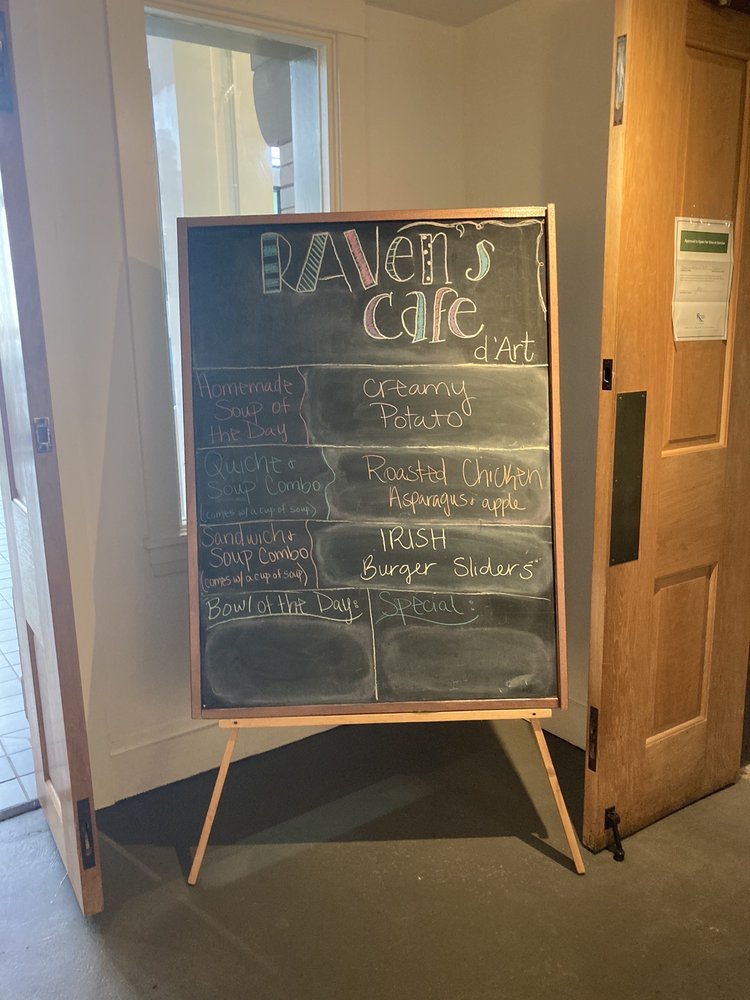 RAVen's
Cafe
d'Art
Homemade
Soup of
the Day
Creamy
Potato
Quiche &
Soup Combo
(comes w/ a cup of soup)
Roasted Chicken
Asparagus & apple
Sandwich &
Soup Combo
(comes w/ a cup of soup)
IRISH
Burger Sliders
Bowl of the Day:
Special: